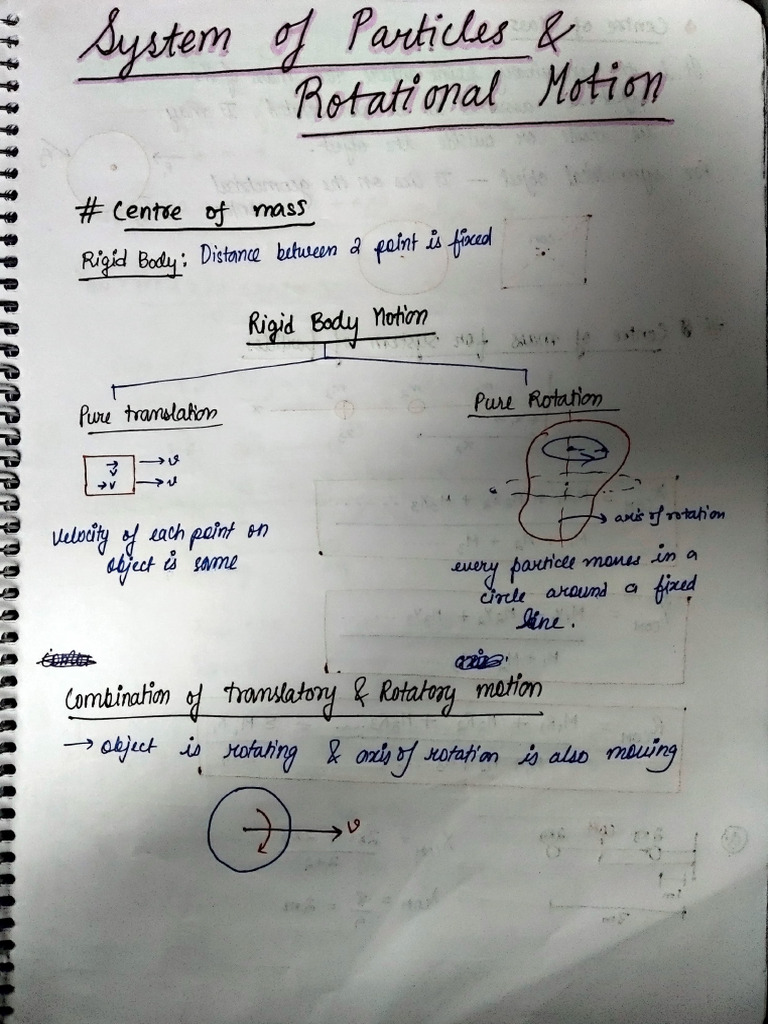 System of Particles &
Rotational Motion
# Centre of mass
Rigid Body: Distance between 2 point is fixed
Rigid Body Motion
Pure translation
Pure Rotation
v → v
→ v → v
axis of rotation
Velocity of each point on
object is same
every particle moves in a
circle around a fixed
line.
Combination of translatory & Rotatory motion
→ object is rotating & axis of rotation is also moving
v